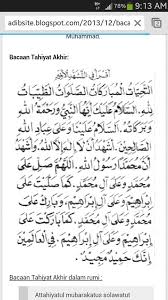 78% 9:13 AM
adibsite.blogspot.com/2013/12/baca
Muhammad.
Bacaan Tahiyat Akhir:
التحيات المباركات الصلوات الطيبات
لله السلام عليك أيها النبي ورحمة الله
وبركاته السلام علينا وعلى عباد الله
الصالحين أشهد أن لا إله إلا الله وأشهد
أن محمدا رسول الله اللهم صل على
محمد وعلى آل محمد كما صليت على
إبراهيم وعلى آل إبراهيم وبارك على
محمد وعلى آل محمد كما باركت على
إبراهيم وعلى آل إبراهيم في العالمين
إنك حميد مجيد
Bacaan Tahiyat Akhir dalam rumi :
Attahiyatul mubarakatus solawatut